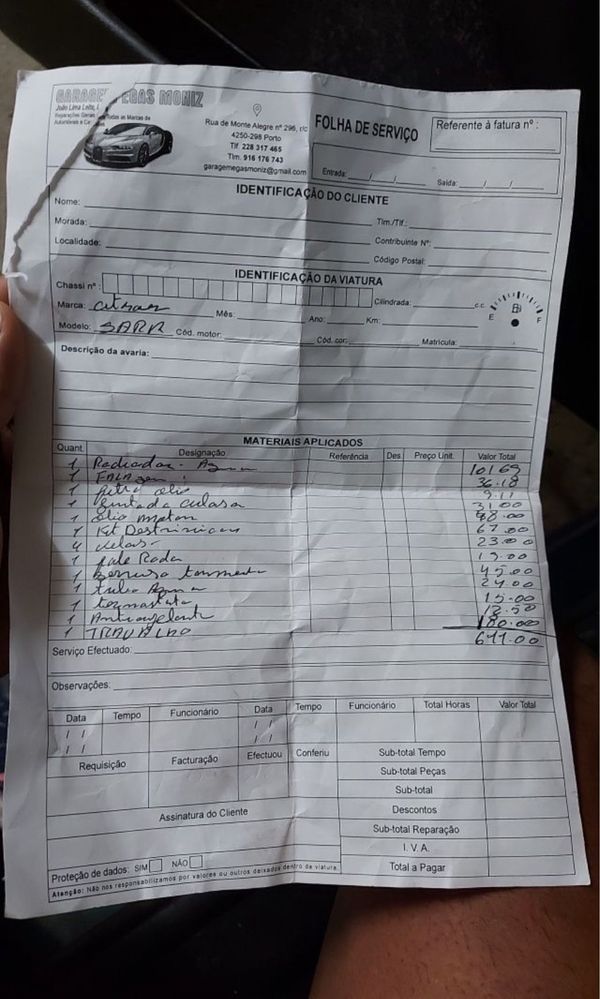 GARAGE EGAS MONIZ
João Lima Leite, L
Reparações Gerais em Todas as Marcas de
Automóveis e Ca
Rua de Monte Alegre nº 296, r/c
4250-296 Porto
Tlf 228 317 465
Tlm. 916 176 743
garagemegasmoniz@gmail.com
FOLHA DE SERVIÇO
Referente à fatura nº :
Entrada: / / Saída: / /
IDENTIFICAÇÃO DO CLIENTE
Nome:
Morada: Tlm./Tlf.:
Localidade: Contribuinte Nº:
Código Postal:
IDENTIFICAÇÃO DA VIATURA
Chassi nº : Cilindrada: c.c. E F
Marca: Mês: Ano: Km:
Modelo: SARA Cód. motor: Cód. cor: Matricula:
Descrição da avaria:
MATERIAIS APLICADOS
Quant. Designação Referência Des. Preço Unit. Valor Total
1 Radiador Agua 10169
1 36.18
1 oleo 9.11
1 Juntada culasa 31.00
1 Olio motor
1 Kit Destrinicas 67.00
4 velas 23.00
1 Rada 15.00
1 45.00
1 tubo Agua 24.00
1 termostato 15.00
1 Anticongelante 12.50
1 TRAVALHO 180.00
Serviço Efectuado:
Observações:
Data Tempo Funcionário Data Tempo Funcionário Total Horas Valor Total
/ / / /
/ / / /
Requisição Facturação Efectuou Conferiu Sub-total Tempo
Sub-total Peças
Sub-total
Assinatura do Cliente Descontos
Sub-total Reparação
I. V. A.
Proteção de dados: SIM NÃO Total a Pagar
Atenção: Não nos responsabilizamos por valores ou outros deixados dentro da viatura